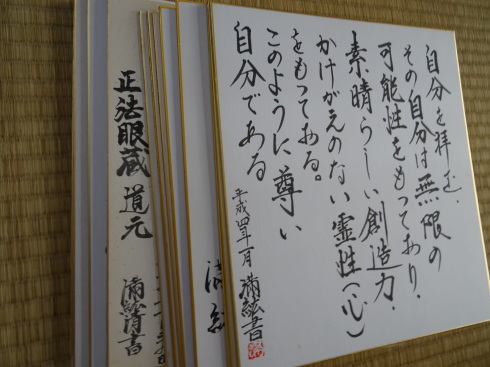 自分を拝む、
その自分は無限の
可能性をもってあり、
素晴らしい創造力、
かけがえのない霊性(心)
をもってある。
このように尊い
自分である
平成四年一月 満紘書
正法眼蔵 道元
満紘清書
満紘